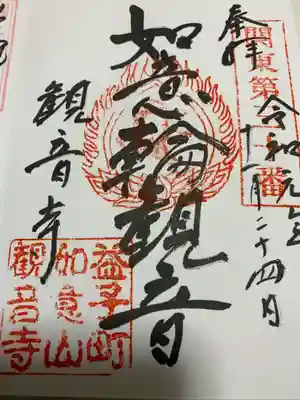 奉拝
關東第
番
令和元年
十一月二十四日
如意輪観音
観音寺
益子町
如意山
観音寺